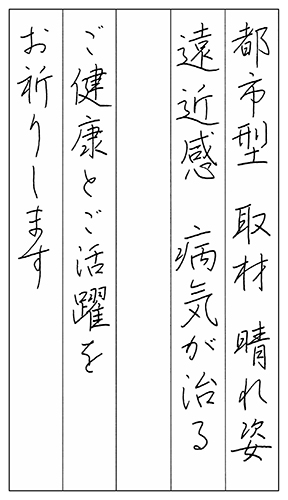 都市型 取材 晴れ姿
遠近感 病気が治る
ご健康とご活躍を
お祈りします